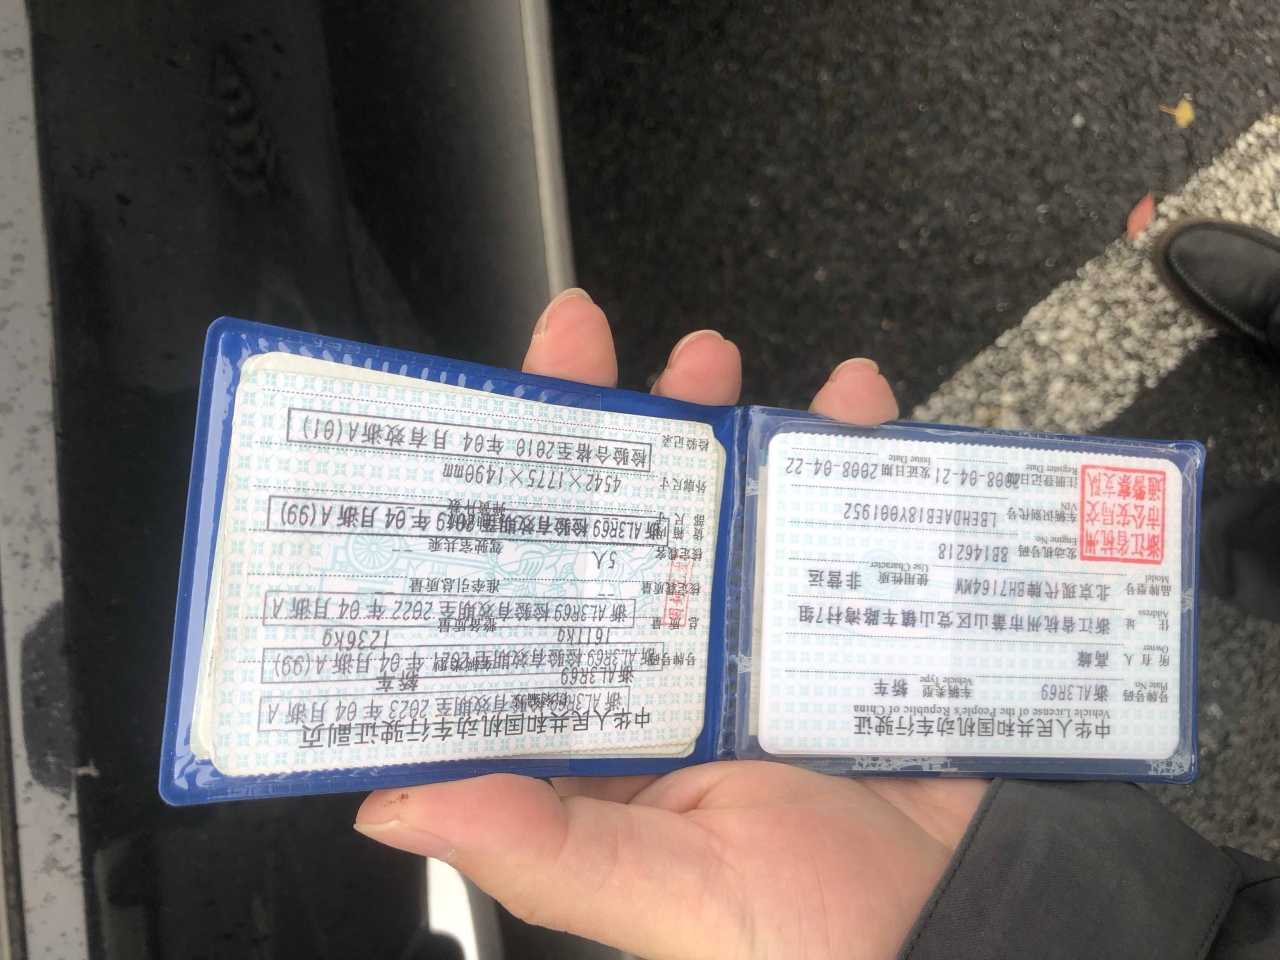 中华人民共和国机动车行驶证
Vehicle License of the People's Republic of China
号牌号码 浙AL3R69 车辆类型 轿车
Plate No. Vehicle Type
所有人 高峰
Owner
住址 浙江省杭州市萧山区党山镇车路湾村7组
Address
使用性质 非营运
Use Character
品牌型号 北京现代牌BH7164MW
Model
发动机号码 8B146218
Engine No.
车辆识别代号 LBEHDAEB18Y001952
VIN
注册登记日期 2008-04-21 发证日期 2008-04-22
Register Date Issue Date
浙江省杭州
市公安局交
通警察支队
中华人民共和国机动车行驶证副页
浙AL3R69 检验有效期至2023年04月浙A
号牌号码 浙AL3R69 车辆类型 轿车
浙AL3R69 检验有效期至2021年04月浙A(99)
总质量 1611kg 整备质量 1236kg
浙AL3R69 检验有效期至2022年04月浙A
核定载质量 -- 准牵引总质量 --
核定载客 5人 驾驶室共乘 --
浙AL3R69 检验有效期至2019年04月浙A(99)
外廓尺寸 4542×1775×1490mm
检验记录 检验合格至2010年04月有效浙A(01)